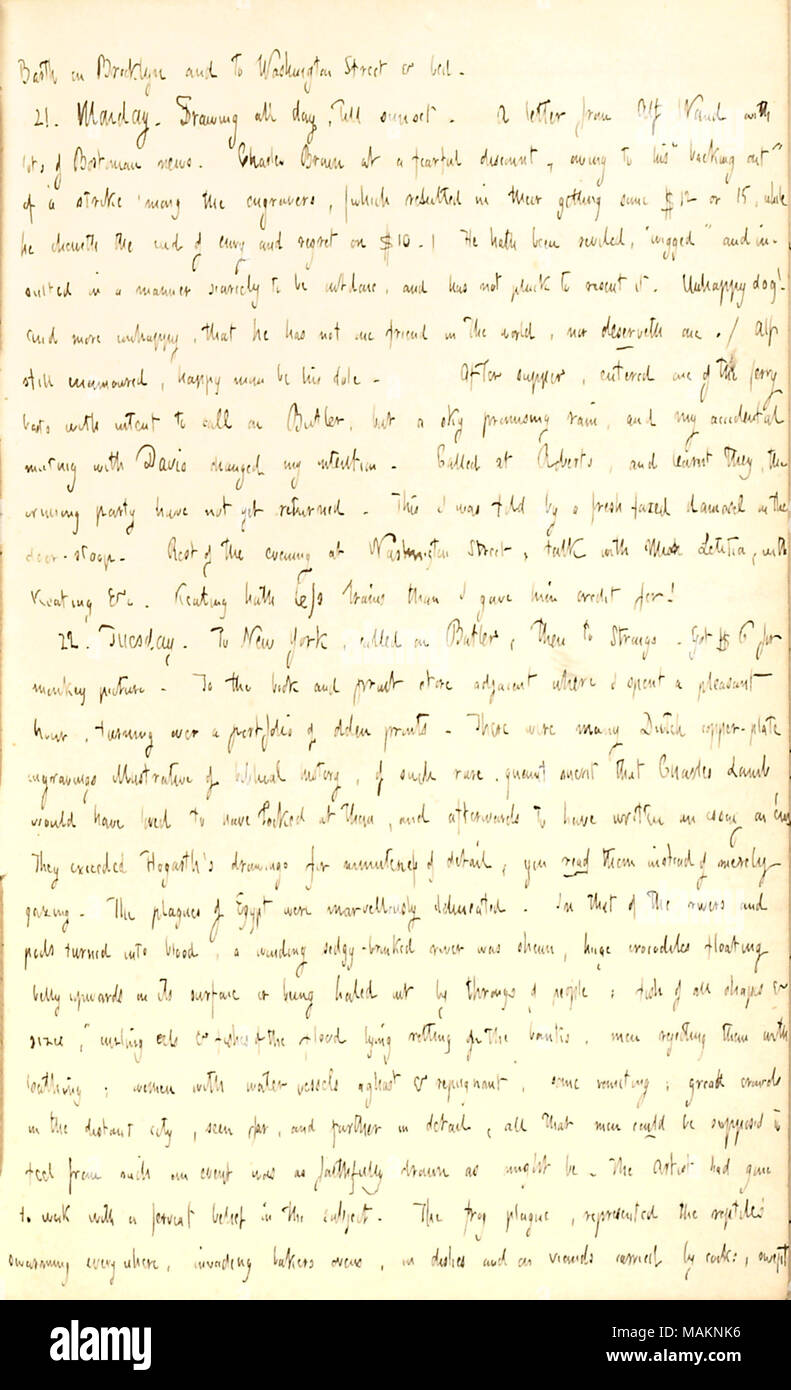 Barth in Brooklyn and to Washington Street & bed.
21. Monday. Drawing all day, till sunset. A letter from Alf Waud with
lots of Bostonian news. Charles Brown at a fearful discount, owing to his "backing out"
of a strike 'mong the engravers, (which resulted in their getting some $12 or 15, while
he cheweth the cud of envy and regret on $10.) He hath been reviled, "wigged" and in-
sulted in a manner scarcely to be outdone, and has not pluck to resent it. Unhappy dog!
And more unhappy, that he has not one friend in the world, nor deserveth one. / Alf
still enamoured, happy man be his dole. After supper, entered one of the ferry
boats with intent to call on Butler, but a sky promising rain, and my accidental
meeting with Davis changed my intention. Called at Roberts, and learnt they, the
cruising party have not yet returned. This I was told by a fresh faced damosel on the
door-stoop. Rest of the evening at Washington Street, talk with Miss Letitia, with
Keating &c. Keating hath less brains than I gave him credit for!
22. Tuesday. To New York, called on Butler, then to Strongs. Got $6 for
monkey picture. To the book and print store adjacent where I spent a pleasant
hour, turning over a portfolio of olden prints. There were many Dutch copper-plate
engravings illustrative of biblical history, of such rare, quaint merit that Charles Lamb
would have loved to have looked at them, and afterwards to have written an essay on 'em
They exceeded Hogarth's drawings for minuteness of detail, you read them instead of merely
gazing. The plagues of Egypt were marvellously delineated. In that of the rivers and
pools turned into blood, a winding sedgy-banked river was shewn, huge crocodiles floating
belly upwards on its surface or being haled out by throngs of people; fish of all shapes &
sizes, curling eels & fishes of the flood lying rotting on the banks, men regarding them with
loathing; women with water vessels aghast & repugnant, some vomiting; great crowds
in the distant city, seen far, and further in detail, all that men could be supposed to
feel from such an event was as faithfully drawn as might be. The Artist had gone
to work with a fervent belief in the subject. The frog plague, represented the reptiles
swarming everywhere, invading bakers ovens, in dishes and on viands carried by cooks, swept
alamy
Image ID: MAKNK6
www.alamy.com